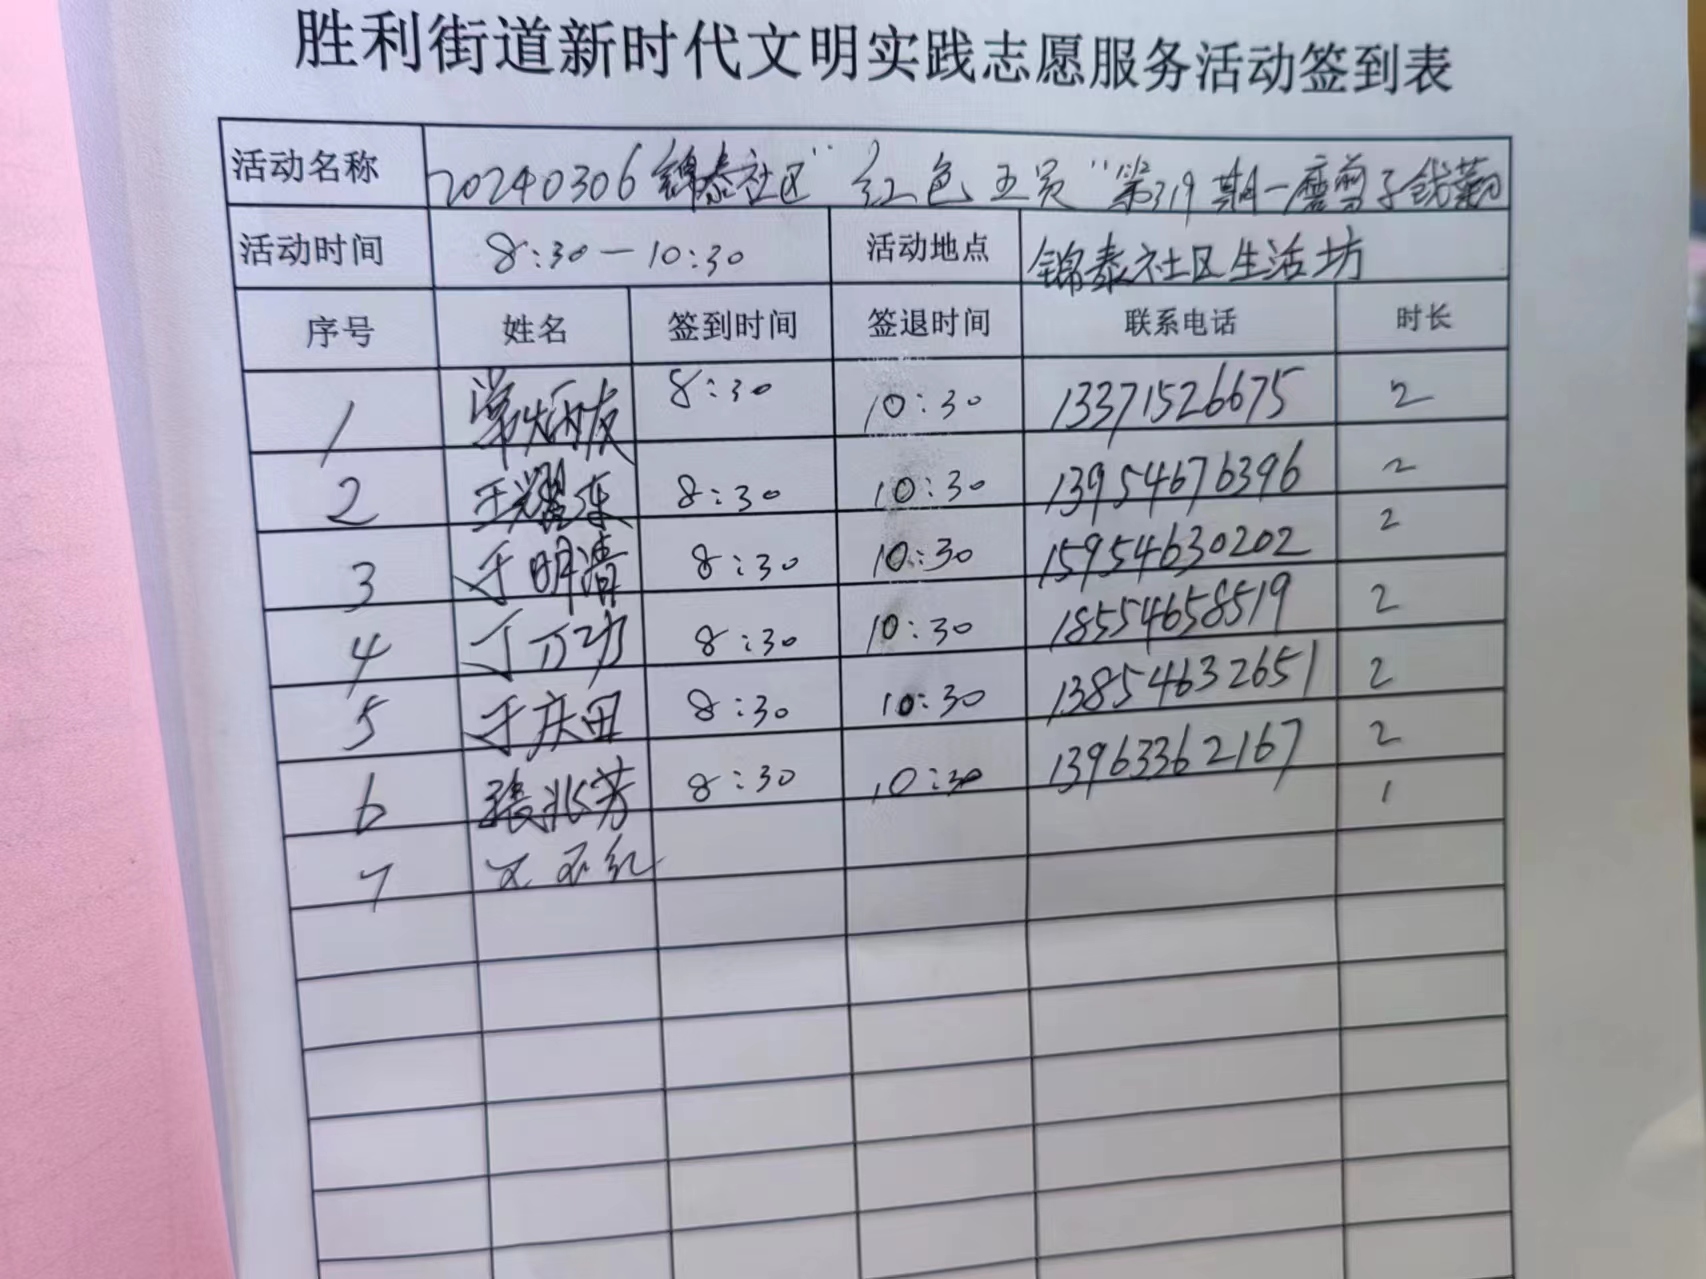 胜利街道新时代文明实践志愿服务活动签到表
活动名称 20240306锦泰社区“红色五员”第319期一磨剪子戗菜刀
活动时间 8:30—10:30 活动地点 锦泰社区生活坊
序号 姓名 签到时间 签退时间 联系电话 时长
1 8:30 10:30 13371526675 2
2 王耀东 8:30 10:30 13954676396 2
3 于明清 8:30 10:30 15954630202 2
4 丁万功 8:30 10:30 18554658519 2
5 于庆田 8:30 10:30 13854632651 2
6 张兆芳 8:30 10:30 13963362167 2
7 1